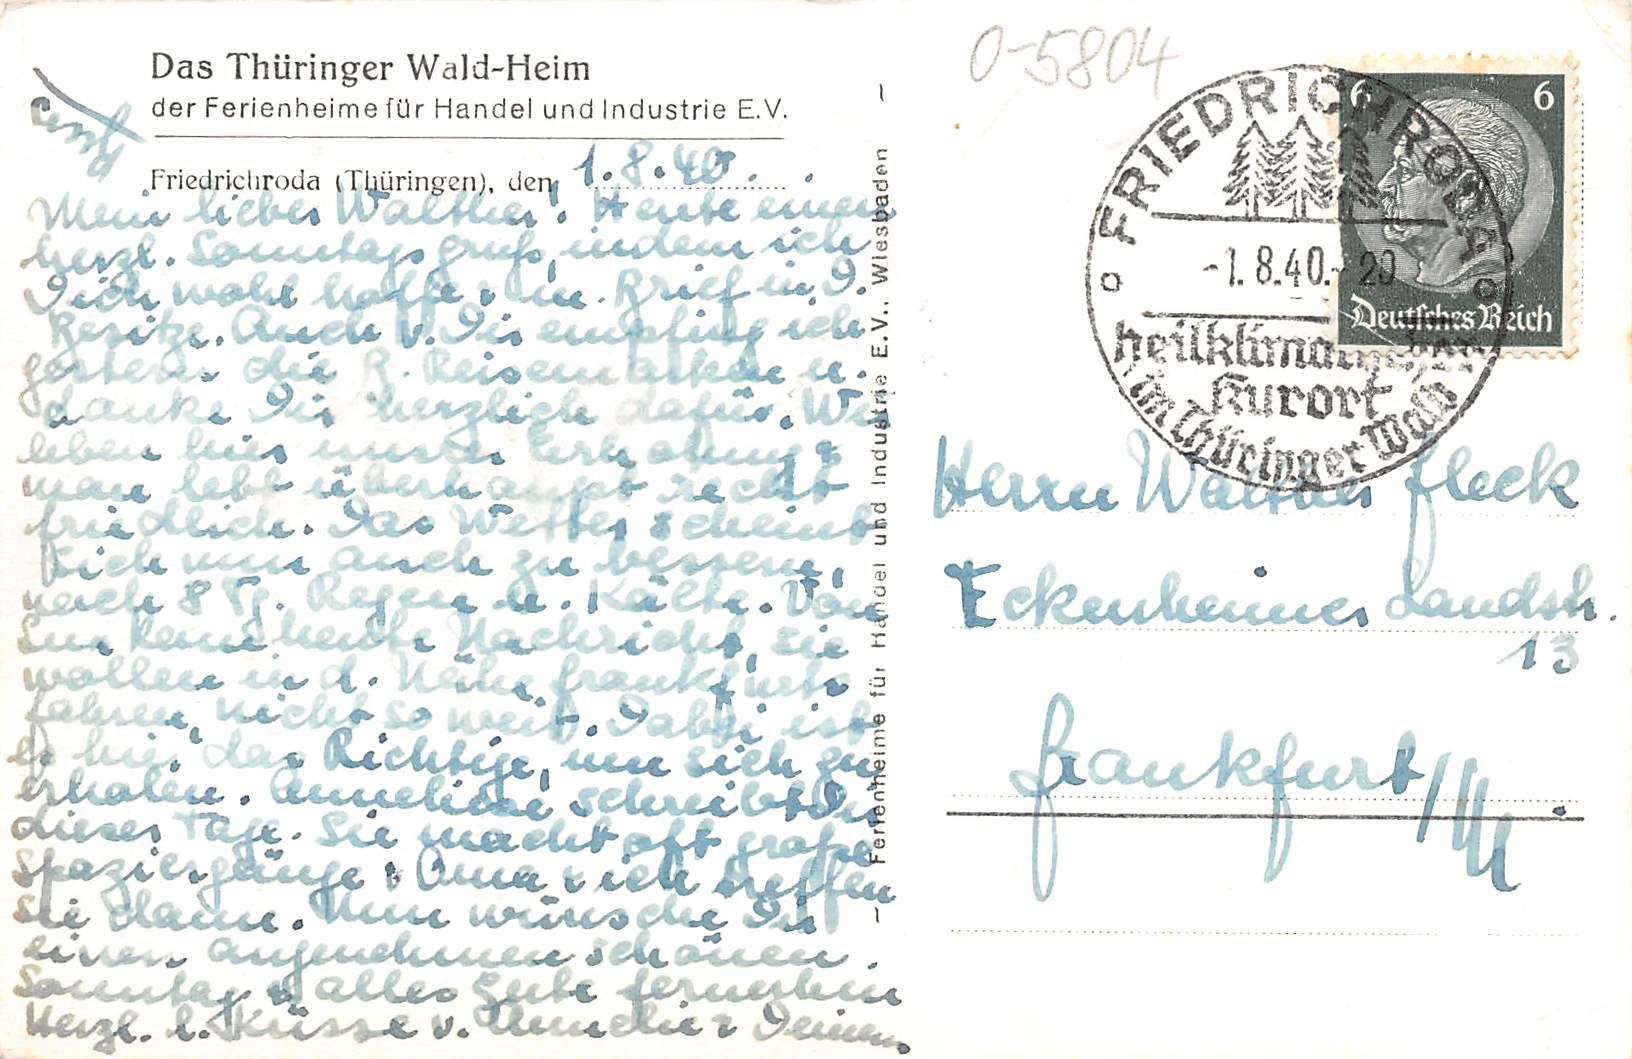 Das Thüringer Wald-Heim
der Ferienheime für Handel und Industrie E.V.
Friedrichroda (Thüringen), den 1.8.40.
Mein lieber Walther! Heute einen
herzl. Sonntagsgruß, indem ich
Dich wohl hoffe u. m. Brief in D.
Besitz. Auch v. Dir empfing ich
gestern die R. Reisemarken u.
danke Dir herzlich dafür. Wir
leben hier unserer Erholung &
man lebt überhaupt recht
friedlich. Das Wetter scheint
sich nun auch zu bessern,
nach 8 Tg. Regen u. Kälte. Von
keine heute Nachricht, sie
wollen in d. Nähe Frankfurts
fahren, nicht so weit. Dabei ist
es hier das Richtige, um sich zu
erholen. Anneliese schreibt Dir
dieser Tage. Sie macht oft große
Spaziergänge & Oma & ich treffen
sie dann. Nun wünsche Dir
einen angenehmen schönen
Sonntag & alles Gute fernerhin
Herzl. l. Küsse v. Deinen
Ferienheime für Handel und Industrie E.V., Wiesbaden
0-5804
FRIEDRICHRODA
-1.8.40.-20
heilklimatischer
Kurort
im Thüringer Wald
6 6
Deutsches Reich
Herrn Walther Fleck
Eckenheimer Landstr.
13
Frankfurt/M.